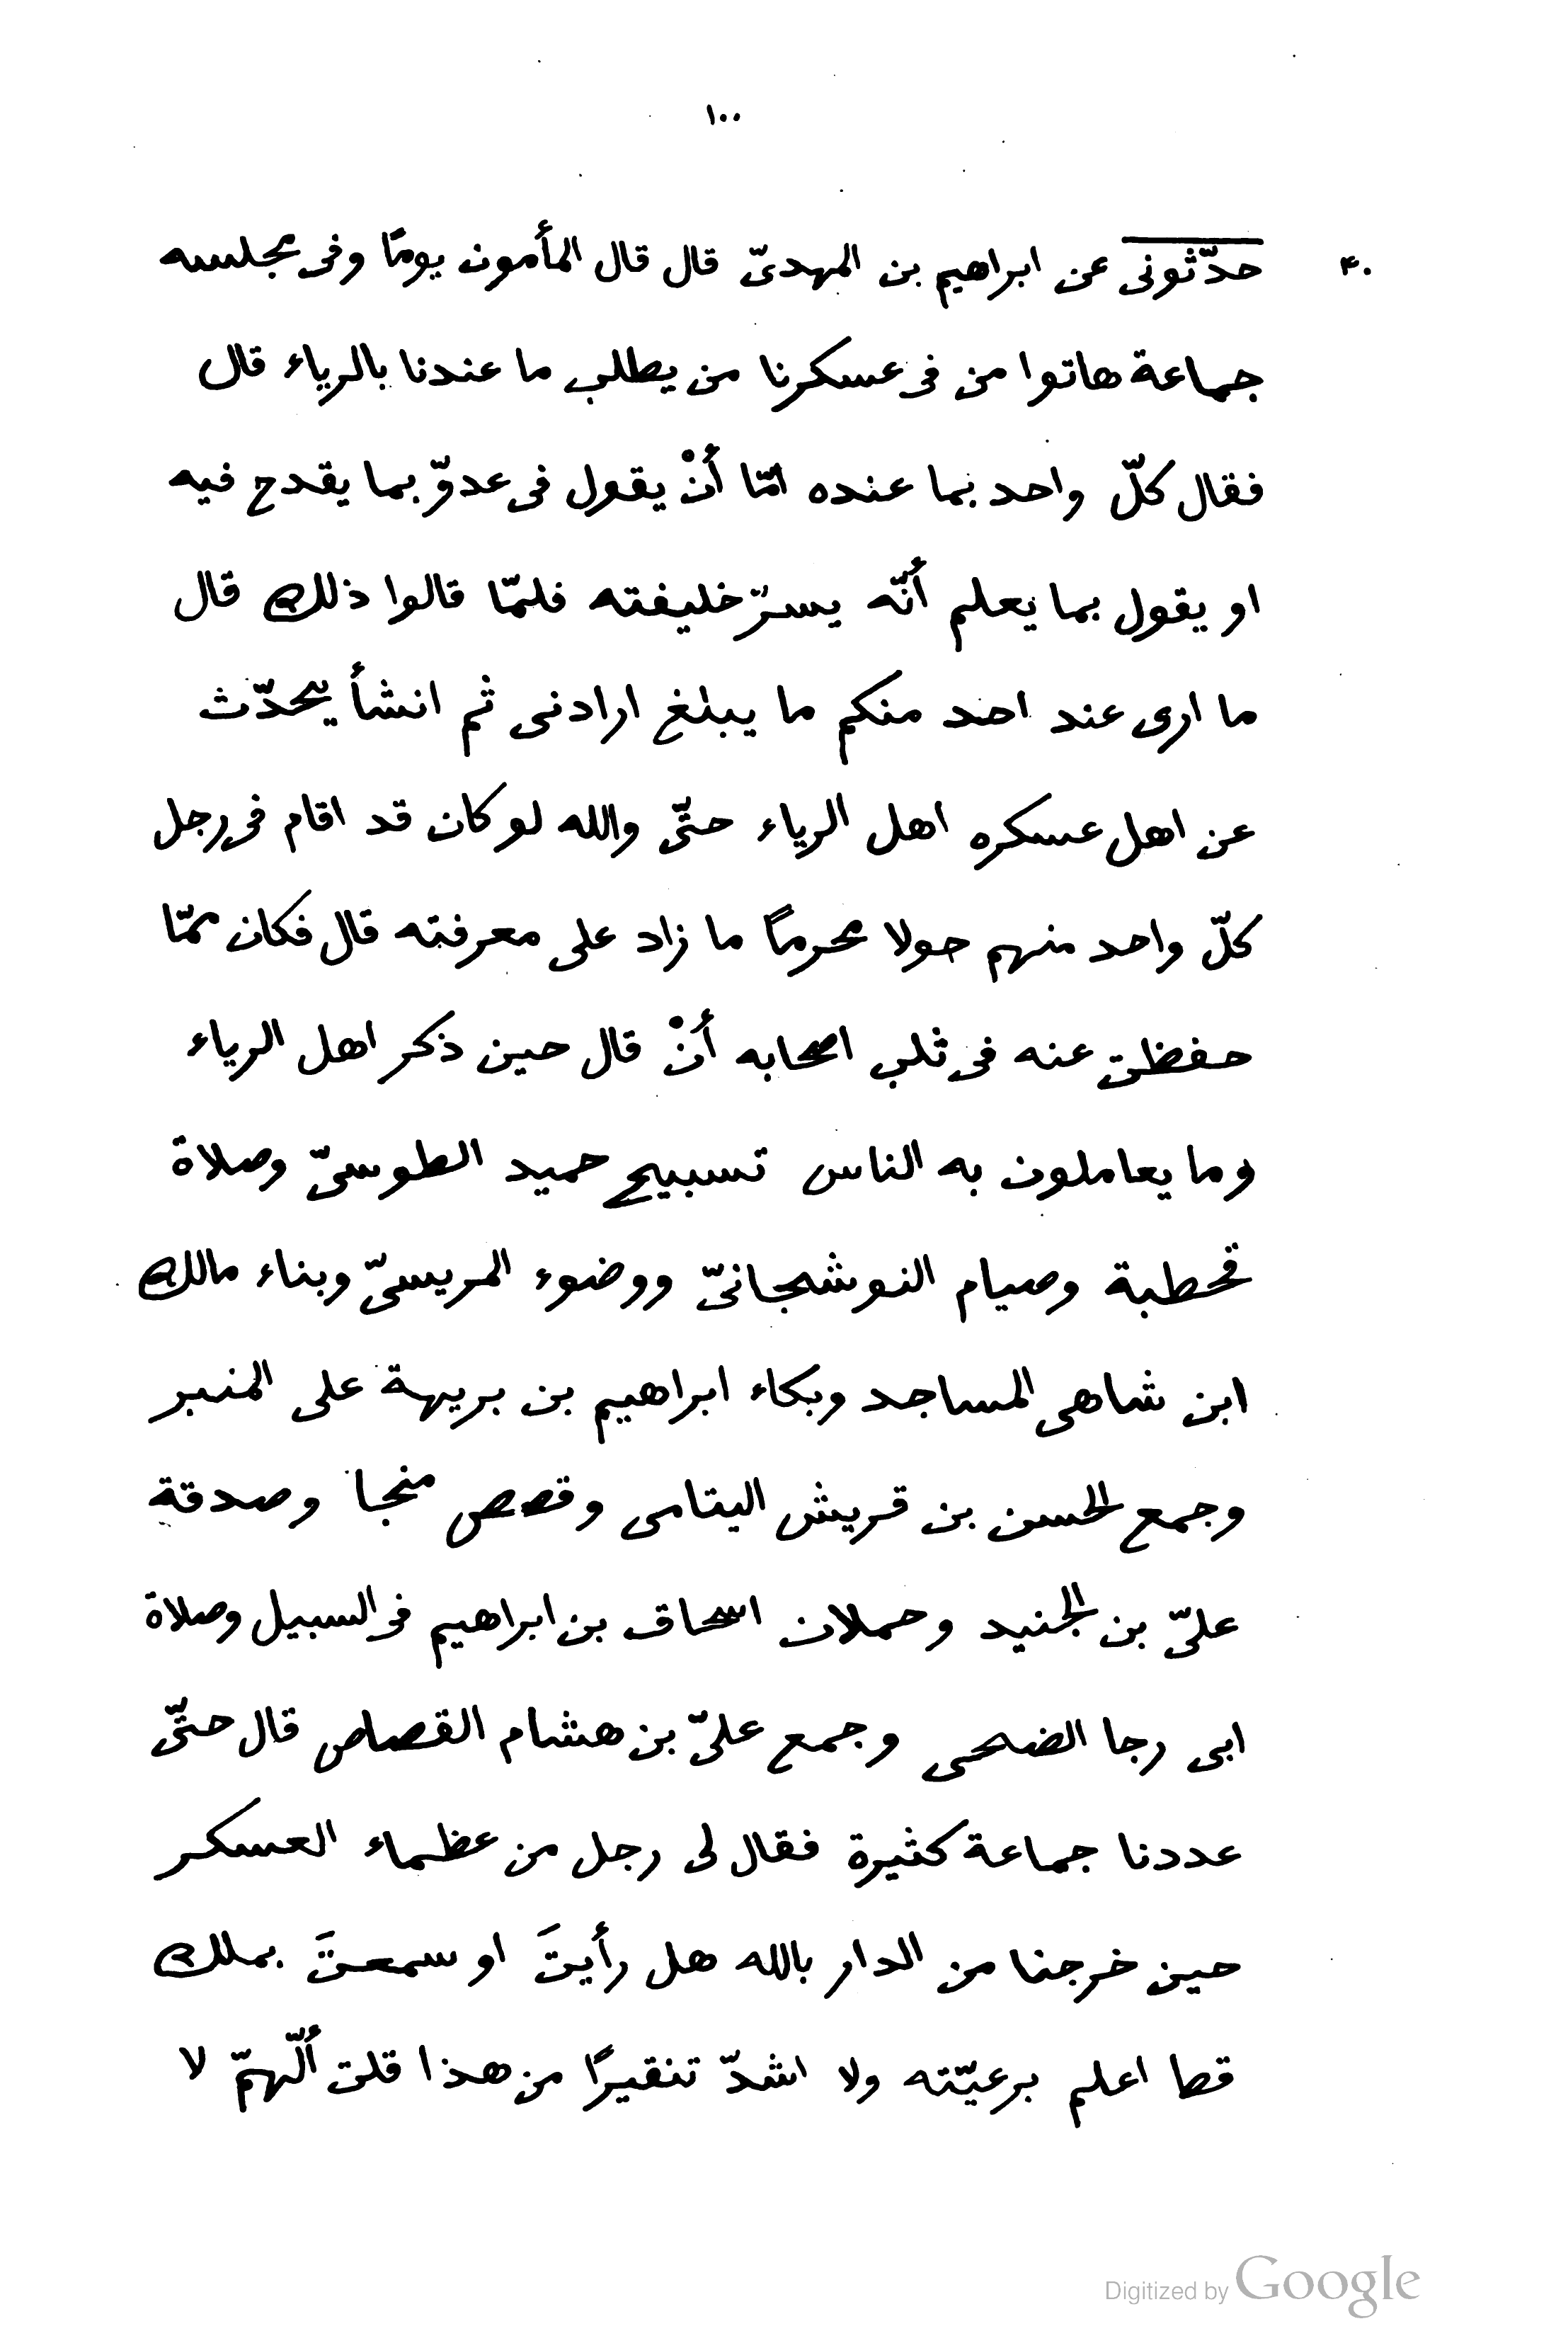 ١٠٠
٤٠ حدّثونى عن ابراهيم بن المهدىّ قال قال المأمون يومًا وفى مجلسه
جماعة هاتوا من فى عسكرنا من يطلب ما عندنا بالرياء قال
فقال كلّ واحد بما عنده امّا أنْ يقول فى عدوّ بما يقدح فيه
او يقول بما يعلم أنّه يسرّ خليفته فلمّا قالوا ذلك قال
ما ارى عند احد منكم ما يبلغ ارادنى ثم انشأ يحدّث
عن اهل عسكره اهل الرياء حتّى والله لو كان قد اقام فى رحل
كلّ واحد منهم حولا محرمًا ما زاد على معرفته قال فكان ممّا
حفظت عنه فى ثلب اصحابه أنْ قال حين ذكر اهل الرياء
وما يعاملون به الناس تسبيح حميد الطوسىّ وصلاة
قحطبة وصيام النوشجانىّ ووضوء المريسىّ وبناء مالك
ابن شاهى المساجد وبكاء ابراهيم بن بريهة على المنبر
وجمع الحسن بن قريش اليتامى وقصص منجا وصدقة
علىّ بن الجنيد وحملان اسحاق بن ابراهيم فى السبيل وصلاة
ابى رجا الضحى وجمع علىّ بن هشام القصاص قال حتّى
عددنا جماعة كثيرة فقال لى رجل من عظماء العسكر
حين خرجنا من الدار بالله هل رأيتَ او سمعتَ بملك
قط اعلم برعيّته ولا اشدّ تنقيرًا من هذا قلت ألّهمّ لا
Digitized by Google